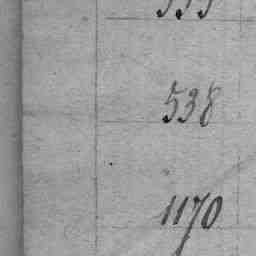 538
1170